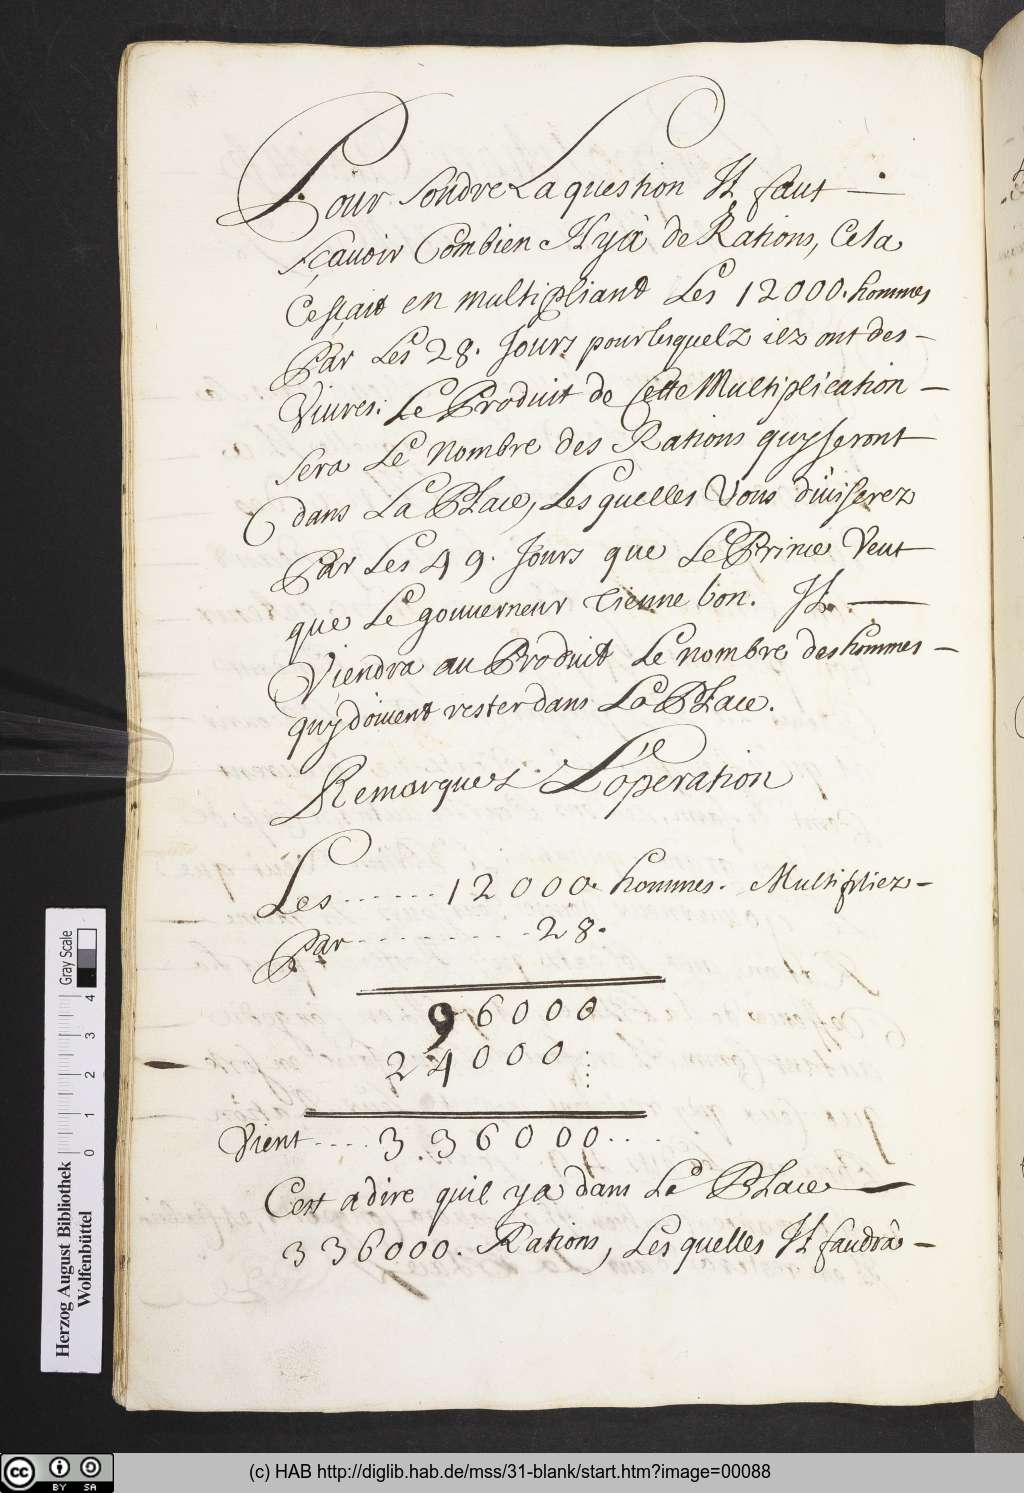 Pour Soudre La question Il faut —
sçauoir Combien Il ya de Rations, Cela
Ce sçait en multipliant Les 12000. hommes
Par Les 28. Jours pour lesquelz ilz ont des —
Viures. Le Produit de Cette Multiplication —
sera Le Nombre des Rations quy seront
dans La Place, Les quelles Vous diuiserez
Par Les 49. Jours que Le Prince Veut
que Le gouuerneur tienne bon. Il —
Viendra au Produit Le nombre des hommes —
quy doiuent rester dans La Place.
Remarquez L'operation
Les ...... 12000. hommes. Multipliez —
Par ......... 28.
96000
24000 :
Vient .... 336000 ....
C'est a dire quil ya dans La Place —
336000. Rations, Les quelles Il faudra —
Herzog August Bibliothek
Wolfenbüttel
0 1 2 3 4
Gray Scale
cc BY SA
(c) HAB http://diglib.hab.de/mss/31-blank/start.htm?image=00088